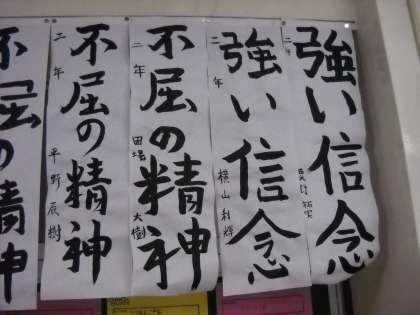 強い信念
二年
強い信念
二年 横山利輝
不屈の精神
二年 田場大樹
不屈の精神
二年 平野辰樹
不屈の精神